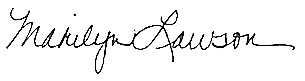 Marilyn Lawson